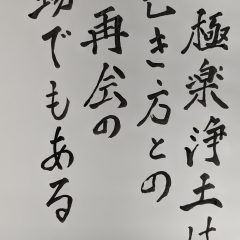 極楽浄土は
き方との
再会の
場でもある